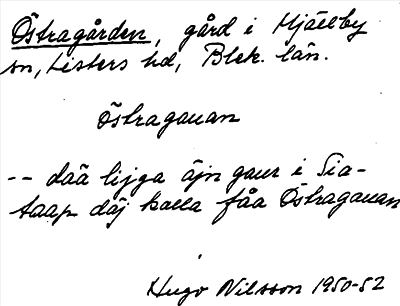 Östragården, gård i Mjällby
sn, Listers hd, Blek. län.
östragauan
-- daä lijga äjn gaur i Sia-
taap däj kalla fåa Östragauan
Hugo Nilsson 1950-52